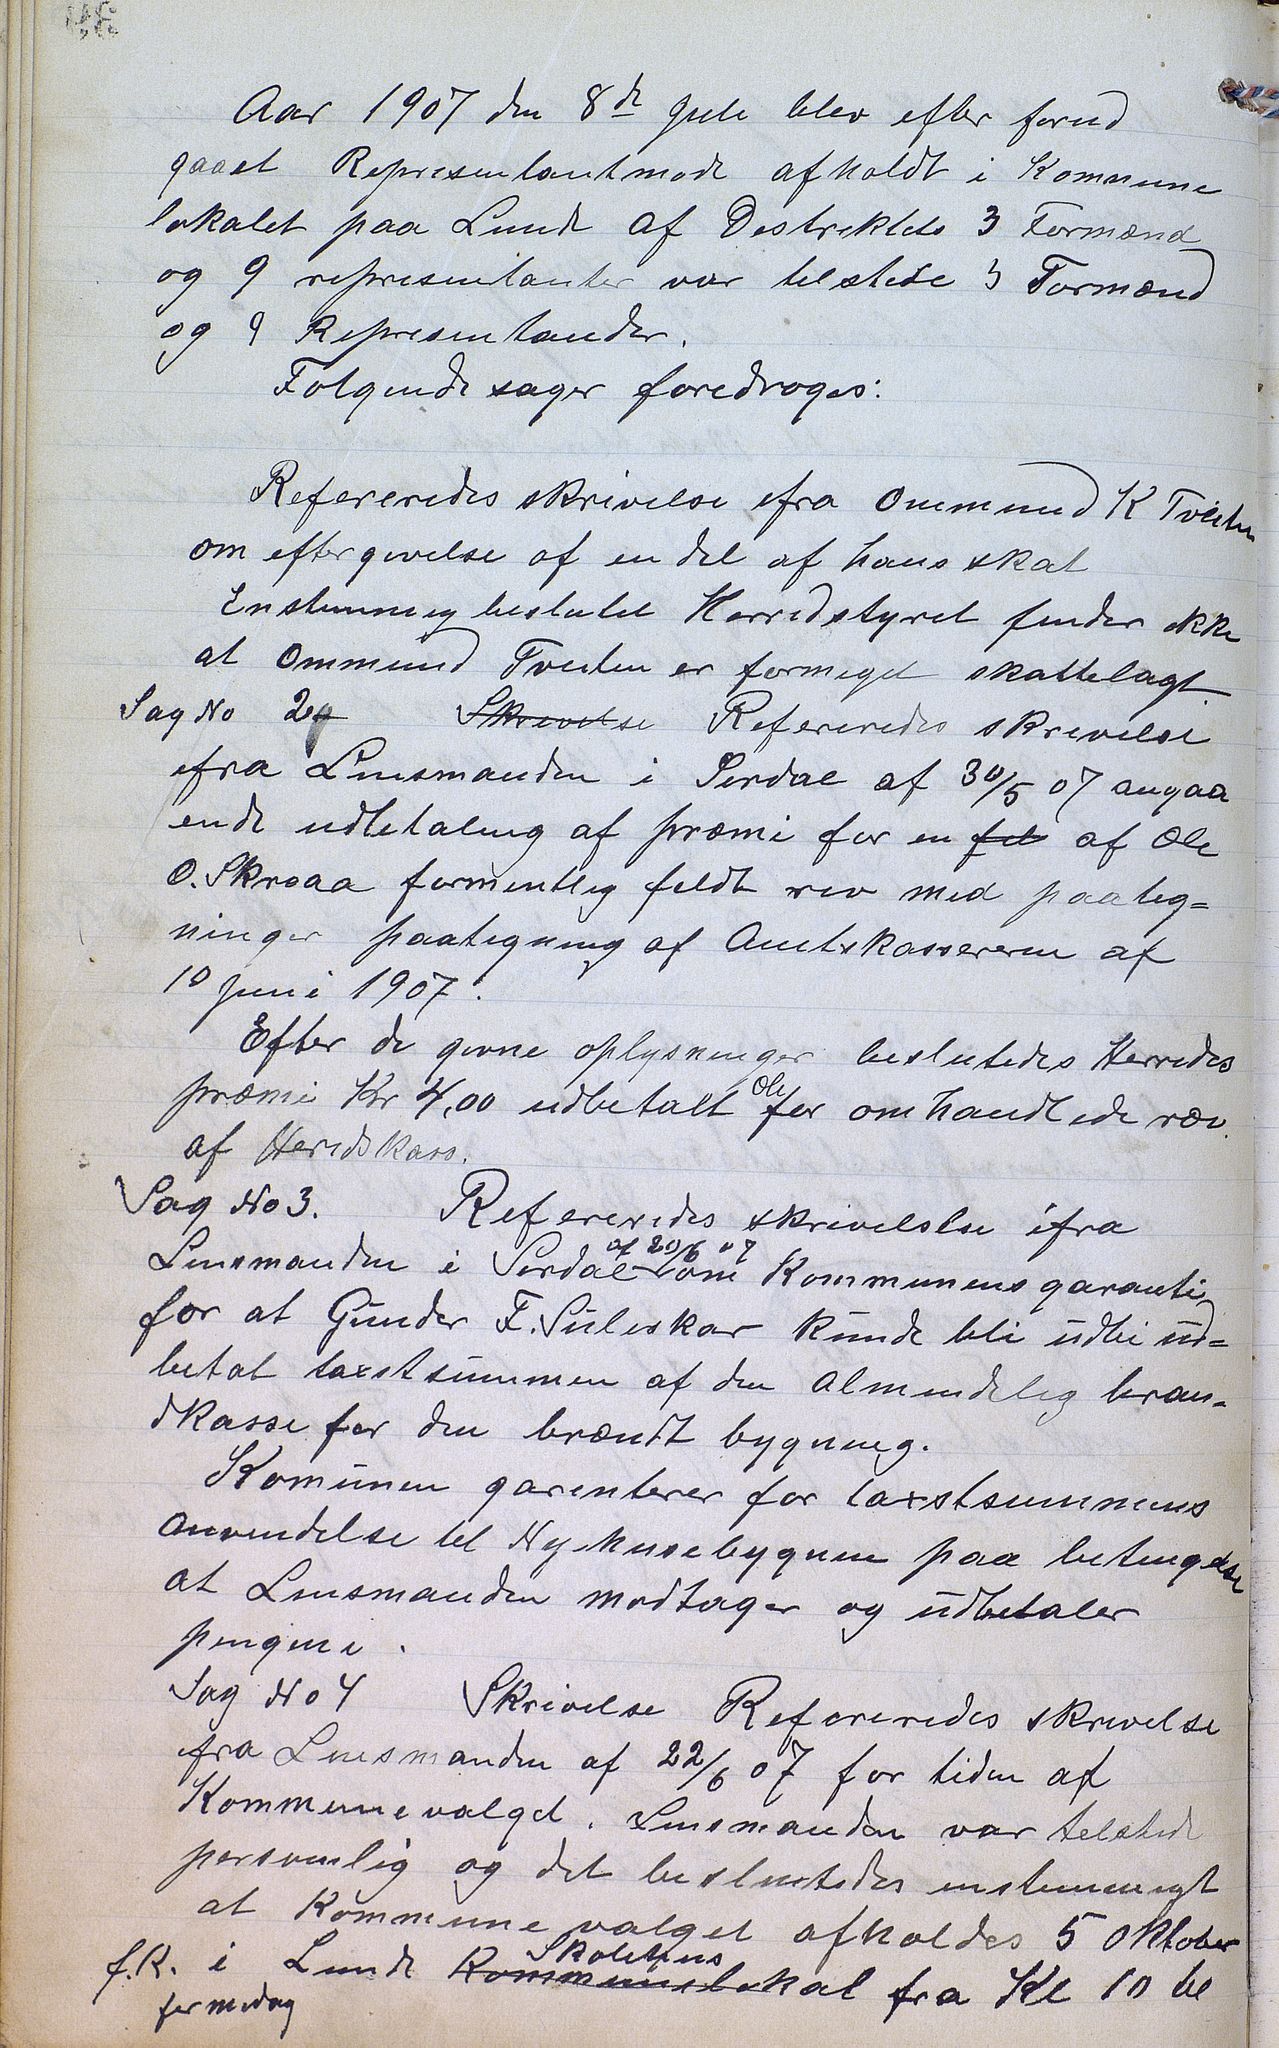 Aar 1907 den 8de Juli blev efter forud
gaaet Representantmøde afholdt i Kommune
lokalet paa Lunde af Destriktets 3 Formænd
og 9 representanter var tilstede 3 Formænd
og 9 Representander.
Følgende sager foredroges:
Refereredes skrivelse ifra Ommund K Tveiten
om eftergivelse af en del af hans skat
Enstemmig beslutet Herredstyret finder ikke
at Ommund Tveiten er formeget skattelagt
Sag No 2 Skrivelse Refereredes skrivelse
ifra Lensmanden i Serdal af 30/5 07 angaa
ende udbetaling af præmi for en fel af Ole
O. Skreaa formentlig feldt rev med paateg=
ninger paategning af Amtskassereren af
10 juni 1907.
Efter de givne oplysninger beslutedes Herreds
præmi Kr 4,00 udbetalt Ole for omhandlede ræv
af Heredskass.
Sag No 3. Refereredes skrivelse ifra
Lensmanden i Serdal af 20/6 07 om Kommunens garanti
for at Gunder F. Suleskar kunde bli udbe ud=
betat taxstsummen af den Almendelig bran-
dkasse for den brændt bygning.
Komunen garenterer for taxstsummens
anvendelse til Ny husebygnin paa betingelse
at Lensmanden modtager og udbetaler
pengene.
Sag No 4 Skrivelse Refereredes skrivelse
ifra Lensmanden af 22/6 07 for tiden af
Kommunevalget. Lensmanden var telstede
personlig og det beslutedes enstemmigt
at Kommunevalget afholdes 5 Oktober
f. K. i Lunde Skolehus Kommunelokal fra Kl 10 til
formidag